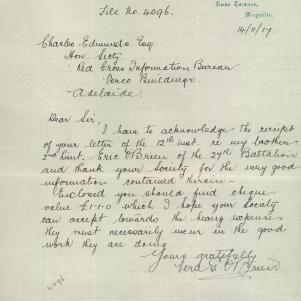 File No. 4096.
Rose Terrace,
Wayville.
14/11/17
Charles Edmunds Esq.
Hon Secty.
Red Cross Information Bureau
Verco Buildings
Adelaide.
Dear Sir,
I have to acknowledge the receipt
of your letter of the 12th inst. re my brother
2nd Lieut. Eric O'Brien of the 27th Battalion
and thank your Society for the very good
information contained herein.
Enclosed you should find cheque
value £1-1-0 which I hope your Society
can accept towards the heavy expense
they must necessarily incur in the good
work they are doing
Yours gratefully
O'Brien
4096